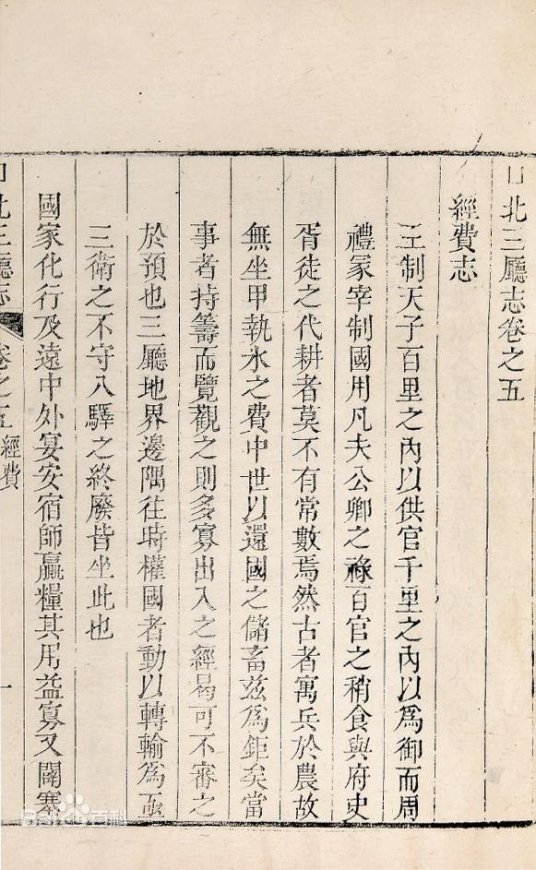 口北三廳志卷之五
經費志
王制天子百里之內以供官千里之內以爲御而周
禮冢宰制國用凡夫公卿之祿百官之稍食與府史
胥徒之代耕者莫不有常數焉然古者寓兵於農故
無坐甲執氷之費中世以還國之儲畜兹爲鉅矣當
事者持籌而覽觀之則多寡出入之經曷可不審之
於預也三廳地界邊隅往時權國者動以轉輸爲亟
三衛之不守八驛之終廢皆坐此也
國家化行及遠中外宴安宿師贏糧其用益寡又闢塞
口北三廳志
卷之五 經費
一
Baidu百科